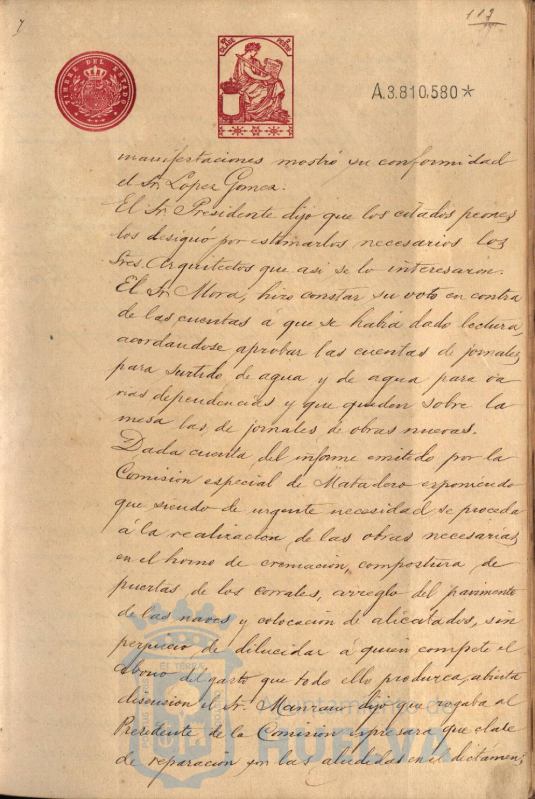 7
113
TIMBRE DEL ESTADO
CLASE
PESETAS
A.3.810.580*
manifestaciones mostró su conformidad
el Sr. Lopez Gomez.
El Sr. Presidente dijo que los citados peones
los designó por estimarlos necesarios los
Sres. Arquitectos que asi se lo interesaron.
El Sr. Mora, hizo constar su voto en contra
de las cuentas á que se habia dado lectura,
acordandose aprobar las cuentas de jornales
para surtido de agua y de agua para va
rias dependencias y que queden sobre la
mesa las de jornales de obras nuevas.
Dada cuenta del informe emitido por la
Comisión especial de Matadero exponiendo
que siendo de urgente necesidad se proceda
á la realizacion de las obras necesarias
en el horno de cremación, compostura de
puertas de los corrales, arreglo del pavimento
de las naves y colocacion de alicatados, sin
perjuicio de dilucidar á quien compete el
abono del gasto que todo ello produzca, abierta
discusion el Sr. Manzano dijo que rogaba al
Presidente de la Comisión expresara que clase
de reparación son las aludidas en el dictamen;
Ayuntamiento de
HUELVA